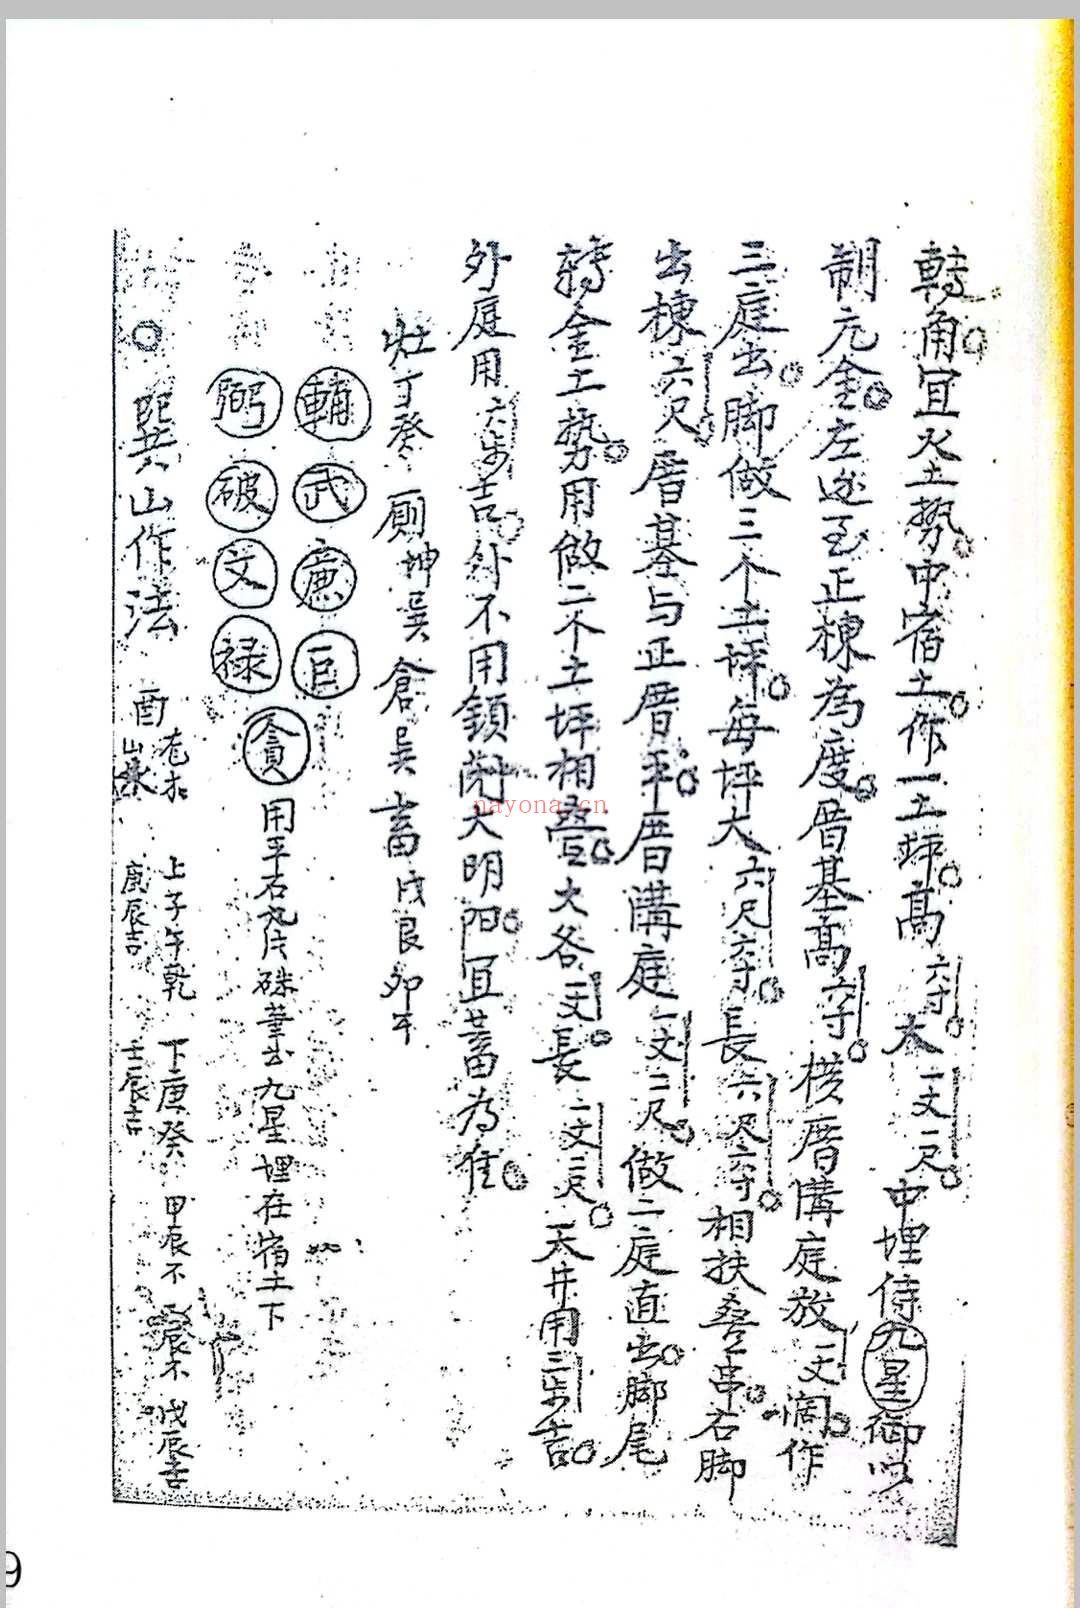 轉角宜火土勢中宿土作一土坪高六寸大一丈一尺中埋侍九星御以
制亢金左边至正棟為度厝基高六寸橫厝溝庭放一丈濶作
三庭出脚做三个土坪每坪大六尺六寸長六尺六寸相扶叠串右脚
出棟六尺厝基与正厝平厝溝庭一丈二尺做二庭直出脚尾
轉金土勢用做二个土坪相叠大各一丈長一丈二尺天井用三步吉
外庭用六步吉外不用鎖閉大明陽宜蓄為佳
灶丁癸厠坤吳倉吳畜戌艮卯
輔武廉巨
弼破文禄
貪用平石九片硃筆书九星埋在宿土下
巽山作法酉山
上子午乾下庚癸甲辰不 辰不戊辰吉
庚辰吉壬辰吉
nayona.cn
9